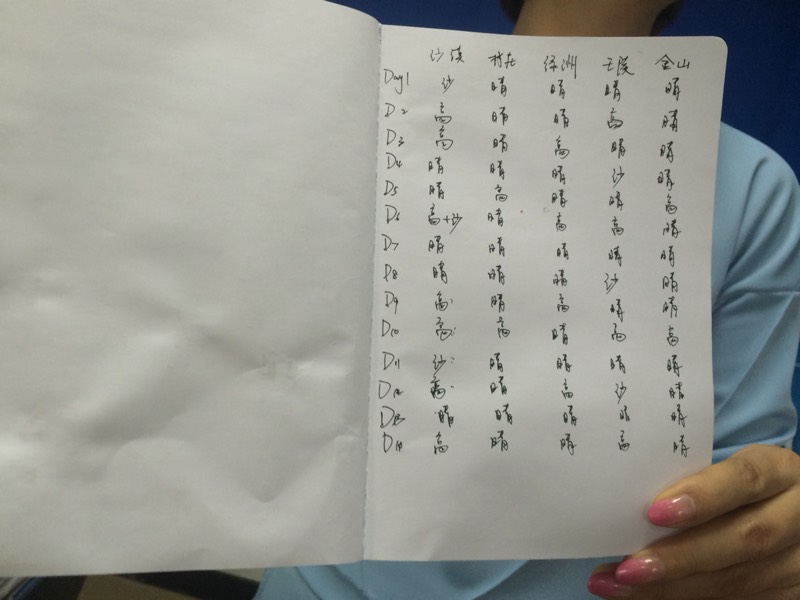 沙漠 村庄 绿洲 王陵 金山
Day1 沙 晴 晴 晴 晴
D2 高 晴 晴 高 晴
D3 高 晴 高 晴 晴
D4 晴 晴 晴 沙 晴
D5 晴 高 晴 晴 高
D6 高+沙 晴 高 高 晴
D7 晴 晴 晴 晴 晴
D8 晴 晴 晴 沙 晴
D9 高 晴 高 晴 晴
D10 高 高 晴 高 高
D11 沙 晴 晴 晴 晴
D12 高 晴 高 沙 晴
D13 晴 晴 晴 晴 晴
D14 高 晴 晴 高 晴